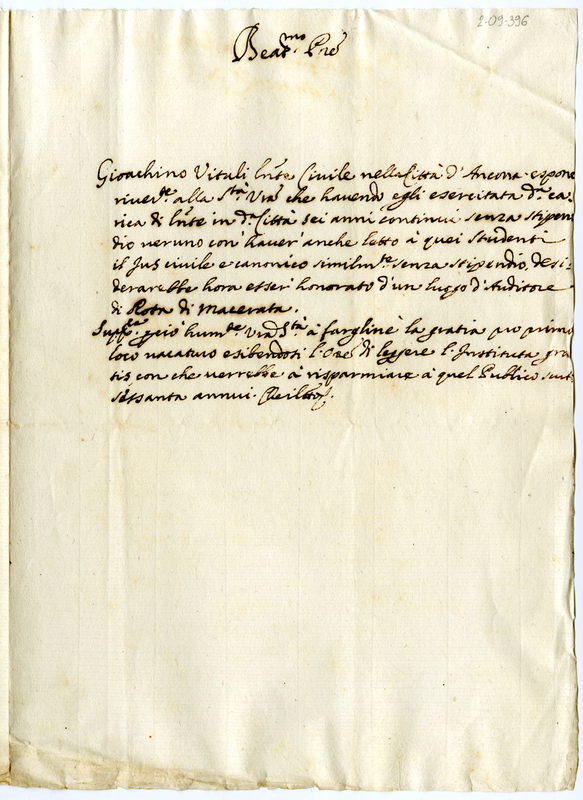 2-09-396
Beat.mo Pre
Gioachino Vitali lnte Civile nella Città d'Ancona espone
rive.te alla S.tà V.ra che havendo egli esercitata d.a ca-
rica di lnte in d.a Città sei anni continui senza stipen
dio veruno con haver anche letto à quei studenti
il Jus civile e canonico similm.te senza stipendio, desi-
derarebbe hora esser honorato d'un luogo d'Auditore
di Rota di Macerata.
Supp.ca perciò hum.te V.ra S.tà à fargline la gratia pro primo
loco vacaturo esibendosi l'Ore di leggere l'Instituta gra
tis con che verrebbe à risparmiare à quel Publico scuti
sessanta annui.